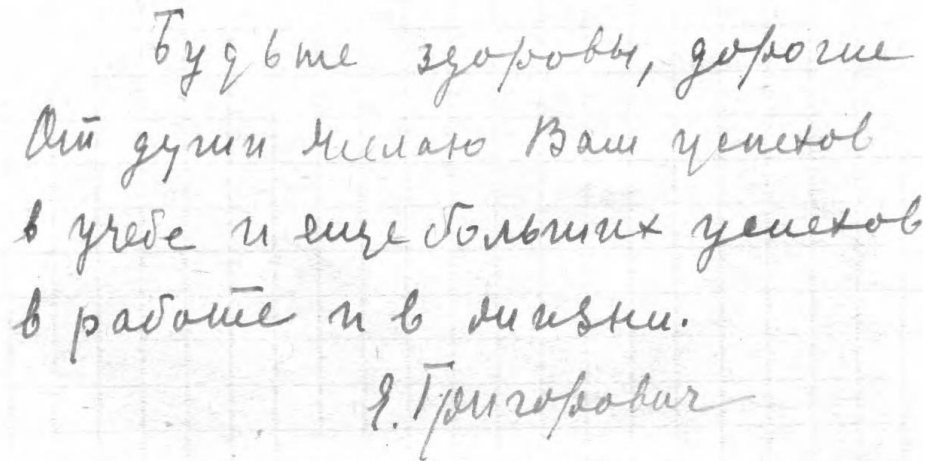 Будьте здоровы, дорогие
От души желаю Вам успехов
в учебе и еще больших успехов
в работе и в жизни.
Я. Григорович